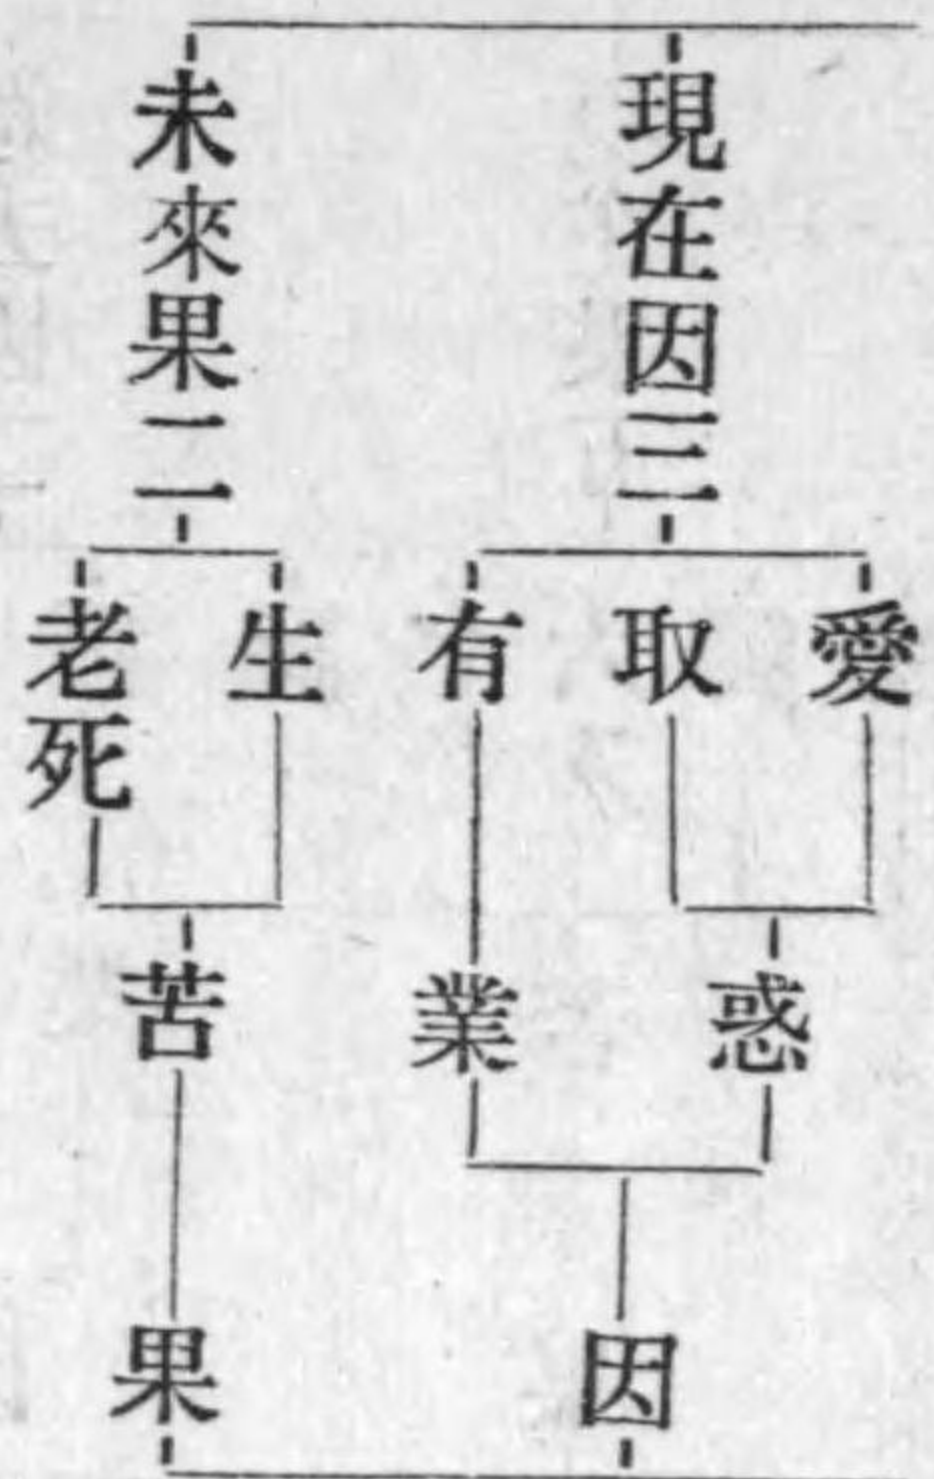 現在因三
愛
取
有
惑
業
因
未來果二
生
老死
苦
果